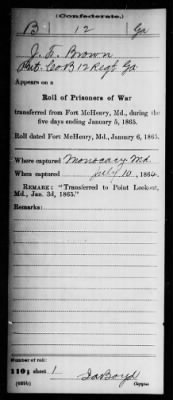 (Confederate.)
B 12 Ga
J. E. Brown
Pvt Co B 12 Regt Ga
Appears on a
Roll of Prisoners of War
transferred from Fort McHenry, Md., during the
five days ending January 5, 1865.
Roll dated Fort McHenry, Md., January 6, 1865.
Where captured Monocacy Md
When captured July 10, 1864.
REMARK: "Transferred to Point Lookout,
Md., Jan. 3d, 1865."
Remarks:
Number of roll:
110; sheet 1
Copyist.